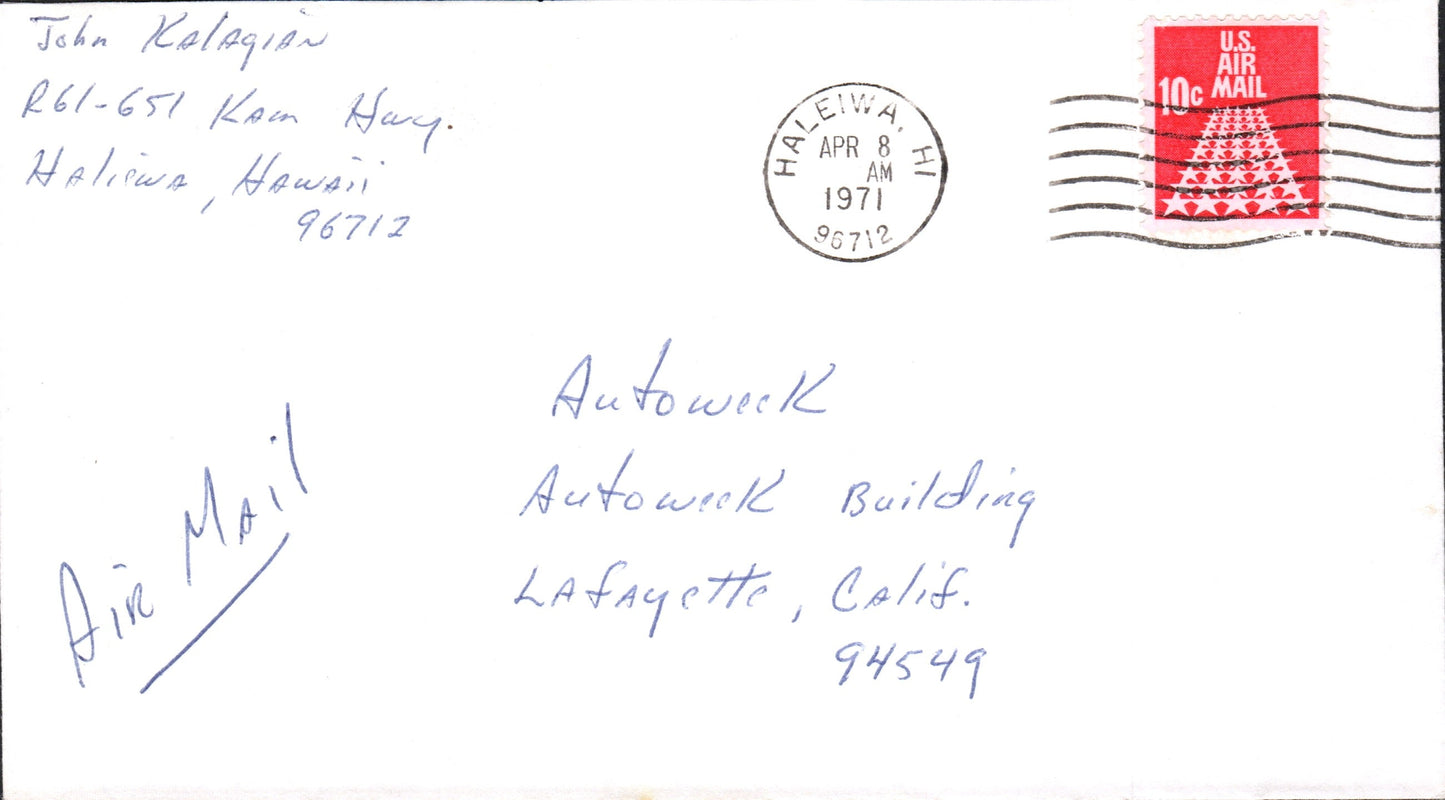 John Kalagian
R61-651 Kam Hwy.
Haliewa, Hawaii
96712
HALEIWA, HI
APR 8
AM
1971
96712
U.S.
AIR
MAIL
10c
Autoweek
Autoweek Building
Lafayette, Calif.
94549
Air Mail